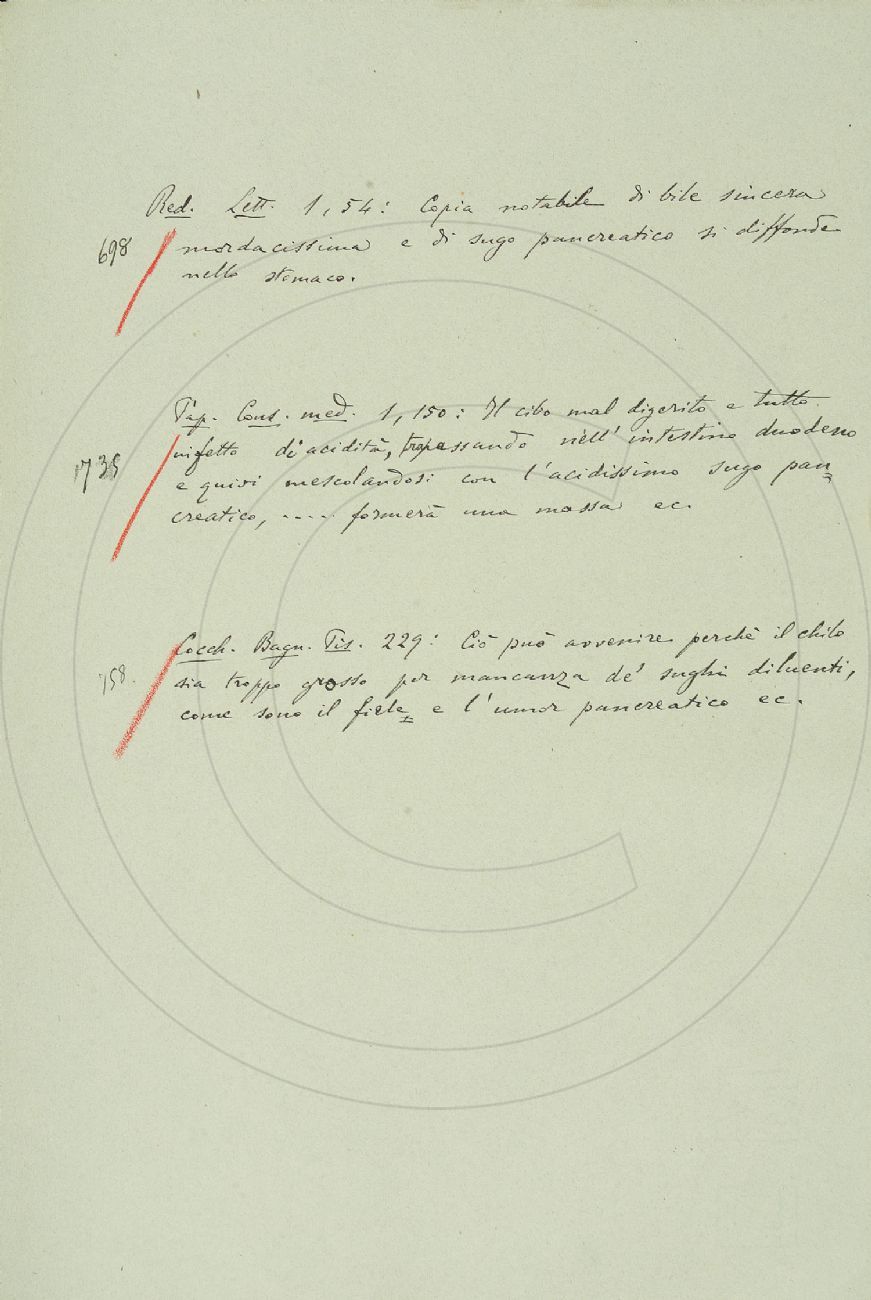 Red. Lett. 1, 54: Copia notabile di bile sincera
698 mordacissima e di sugo pancreatico si diffonde
nello stomaco.
Pap. Cons. med. 1, 150: Il cibo mal digerito e tutto
infetto di acidità, trapassando nell' intestino duodeno
1735
e quivi mescolandosi con l'acidissimo sugo pan=
creatico, ..... formerà una massa ec.
Cocch. Bagn. Pis. 229: Ciò può avvenire perchè il chilo
758. sia troppo grosso per mancanza de' sughi diluenti,
come sono il fiele e l'umor pancreatico ec.